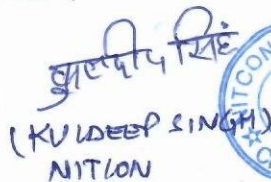 कुलदीप सिंह
(KULDEEP SINGH)
NITCON
ITCON